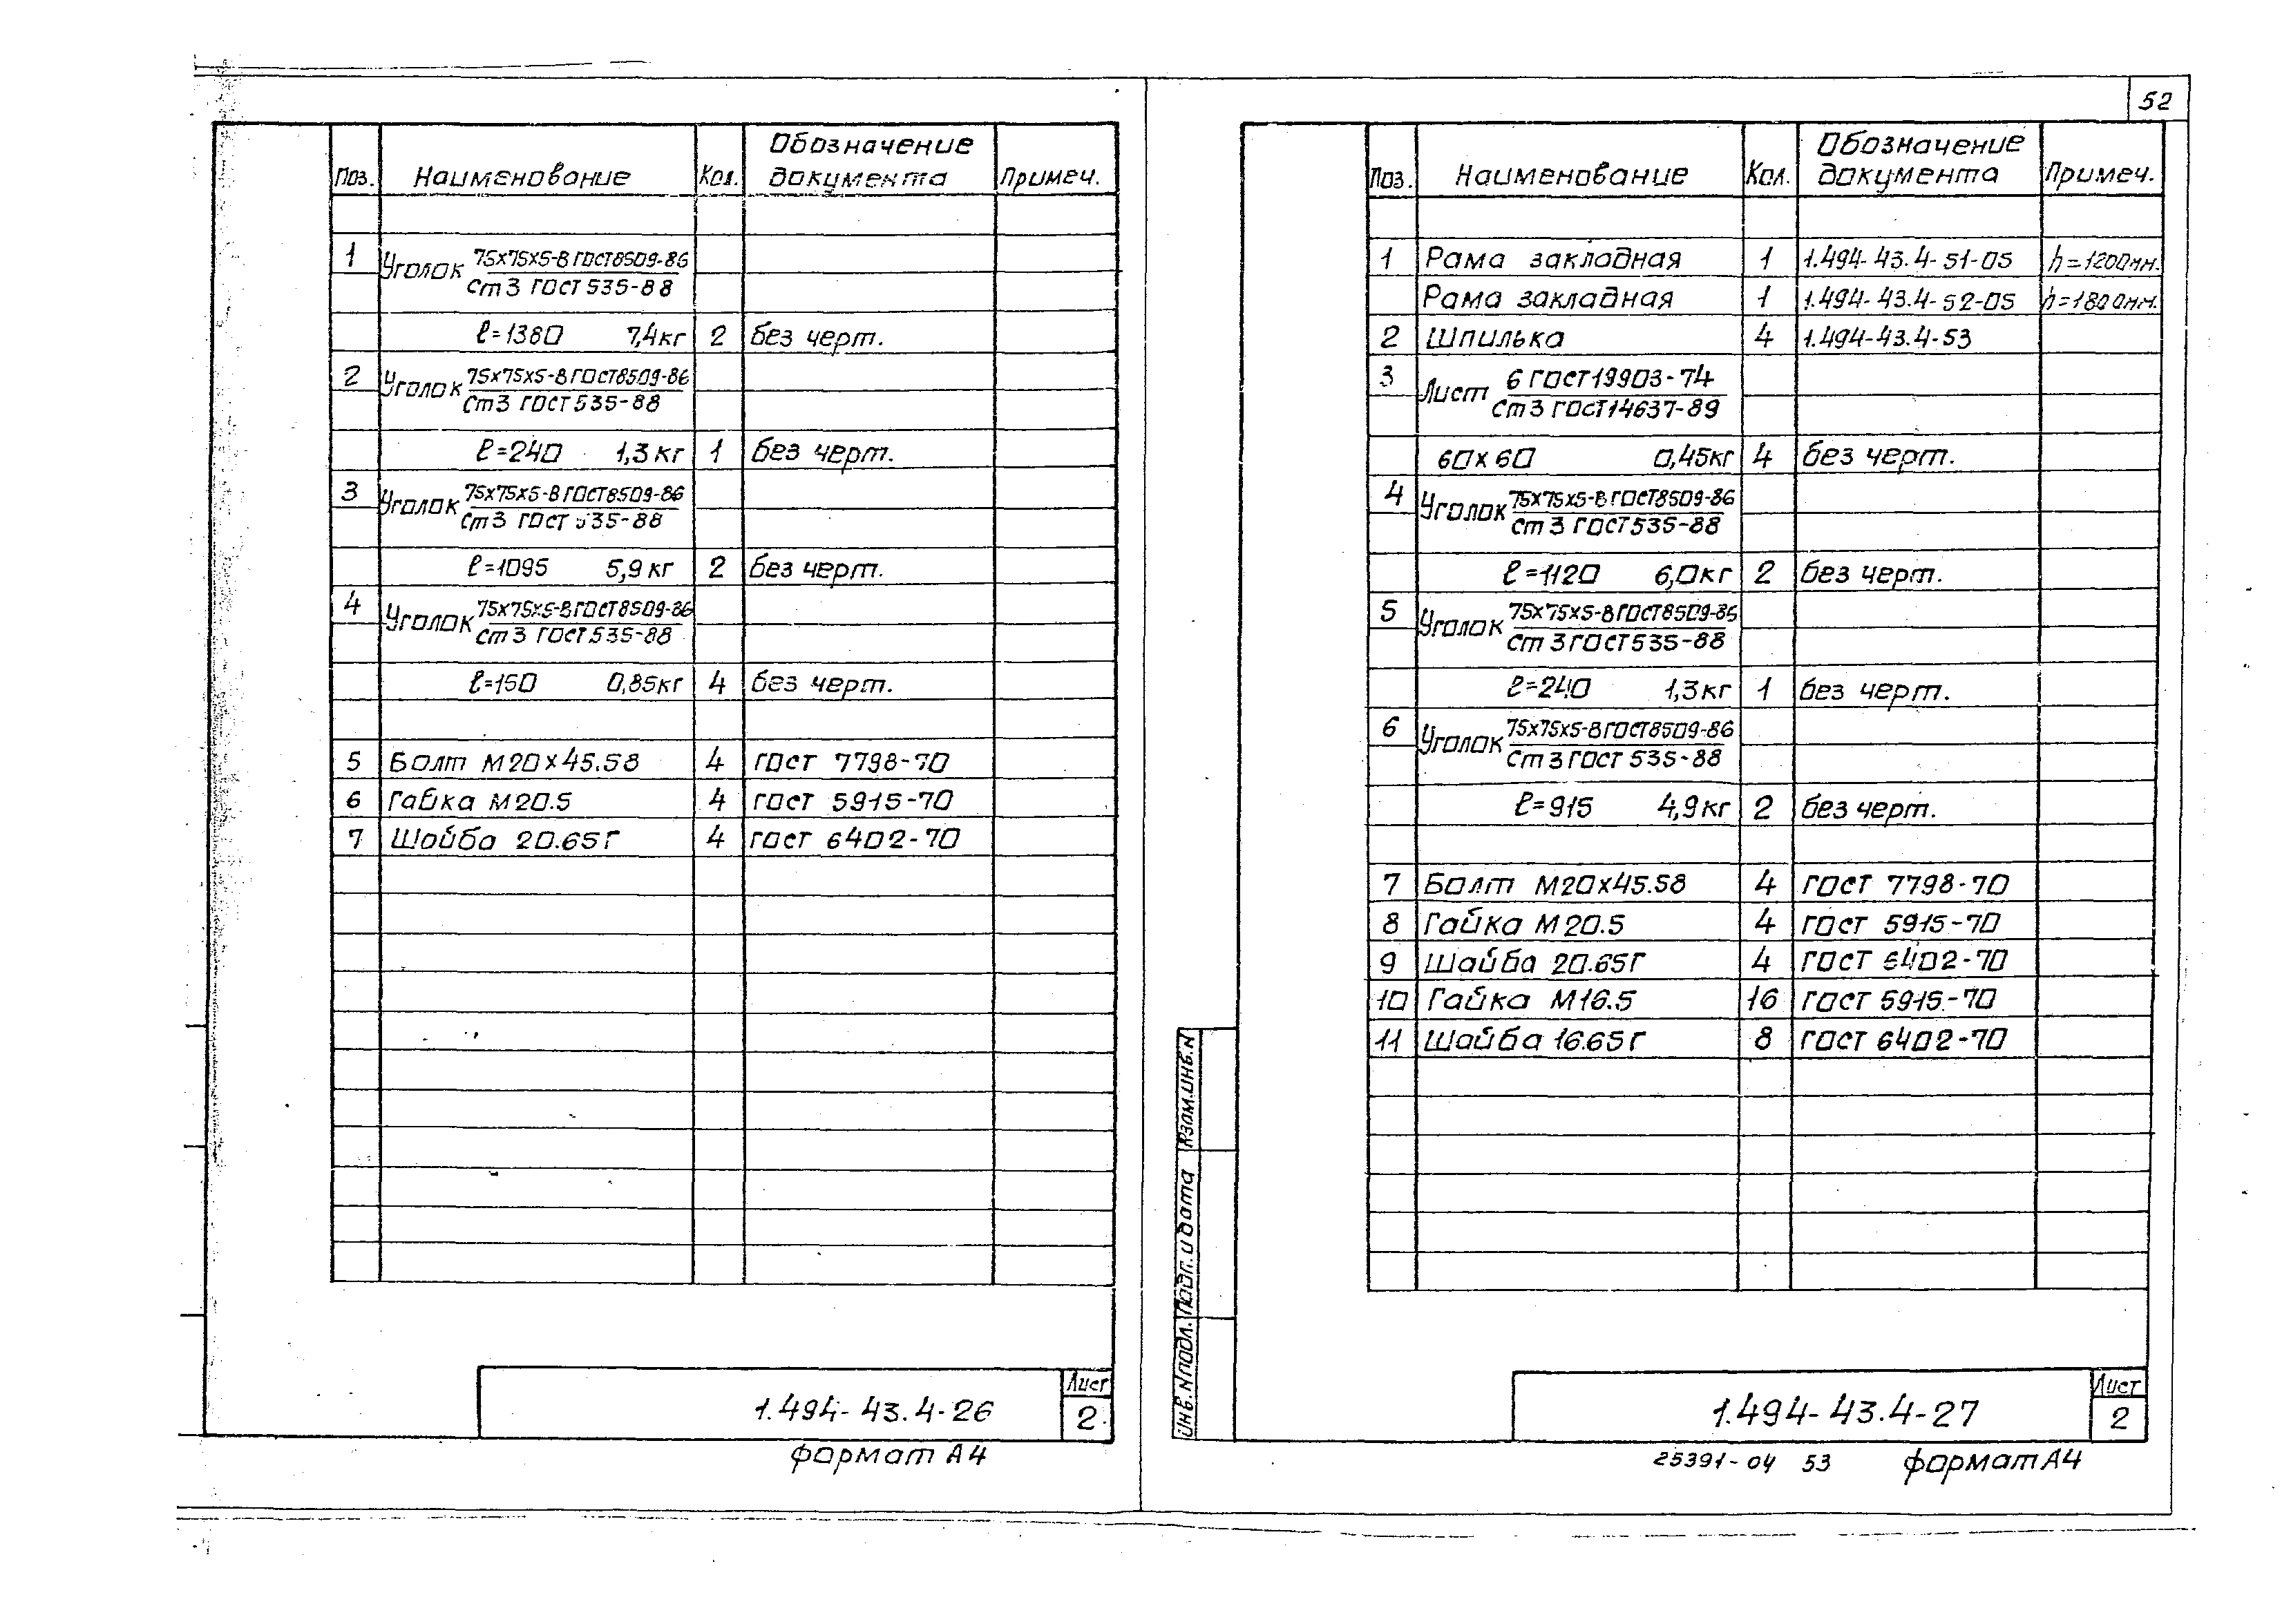 52
Поз. Наименование Кол. Обозначение документа Примеч.
1 Уголок 75х75х5-В ГОСТ8509-86
Ст3 ГОСТ535-88
ℓ=1380 7,4кг 2 без черт.
2 Уголок 75х75х5-В ГОСТ8509-86
Ст3 ГОСТ535-88
ℓ=240 1,3кг 1 без черт.
3 Уголок 75х75х5-В ГОСТ8509-86
Ст3 ГОСТ 535-88
ℓ=1095 5,9кг 2 без черт.
4 Уголок 75х75х5-В ГОСТ8509-86
Ст3 ГОСТ535-88
ℓ=150 0,85кг 4 без черт.
5 Болт М20х45.58 4 ГОСТ 7798-70
6 Гайка М20.5 4 ГОСТ 5915-70
7 Шайба 20.65Г 4 ГОСТ 6402-70
1.494-43.4-26
Лист
2
формат А4
Поз. Наименование Кол. Обозначение документа Примеч.
1 Рама закладная 1 1.494-43.4-51-05 h=1200мм.
Рама закладная 1 1.494-43.4-52-05 h=1800мм.
2 Шпилька 4 1.494-43.4-53
3 Лист 6 ГОСТ19903-74
Ст3 ГОСТ14637-89
60х60 0,45кг 4 без черт.
4 Уголок 75х75х5-В ГОСТ8509-86
Ст3 ГОСТ535-88
ℓ=1120 6,0кг 2 без черт.
5 Уголок 75х75х5-В ГОСТ8509-86
Ст3 ГОСТ535-88
ℓ=240 1,3кг 1 без черт.
6 Уголок 75х75х5-В ГОСТ8509-86
Ст3 ГОСТ 535-88
ℓ=915 4,9кг 2 без черт.
7 Болт М20х45.58 4 ГОСТ 7798-70
8 Гайка М20.5 4 ГОСТ 5915-70
9 Шайба 20.65Г 4 ГОСТ 6402-70
10 Гайка М16.5 16 ГОСТ 5915-70
11 Шайба 16.65Г 8 ГОСТ 6402-70
Взам.инв.N
Подп. и дата
Инв.Nподл.
1.494-43.4-27
Лист
2
25391-04 53 формат А4